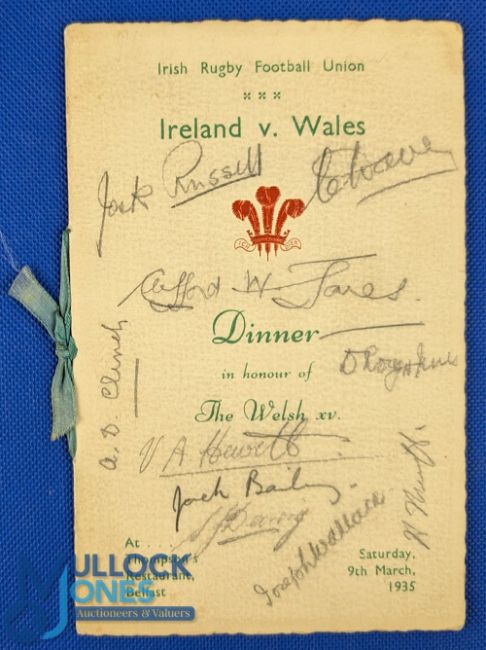 Irish Rugby Football Union
Ireland v. Wales
Jack Russell
Clifford W. Jones.
Dinner
in honour of
The Welsh xv.
A. D. Clinch
V A Hewitt
Jack Bailey
Joseph Wallace
At . . .
Thompson's
Restaurant,
Belfast
Saturday,
9th March,
1935
BULLOCK
JONES
Auctioneers & Valuers